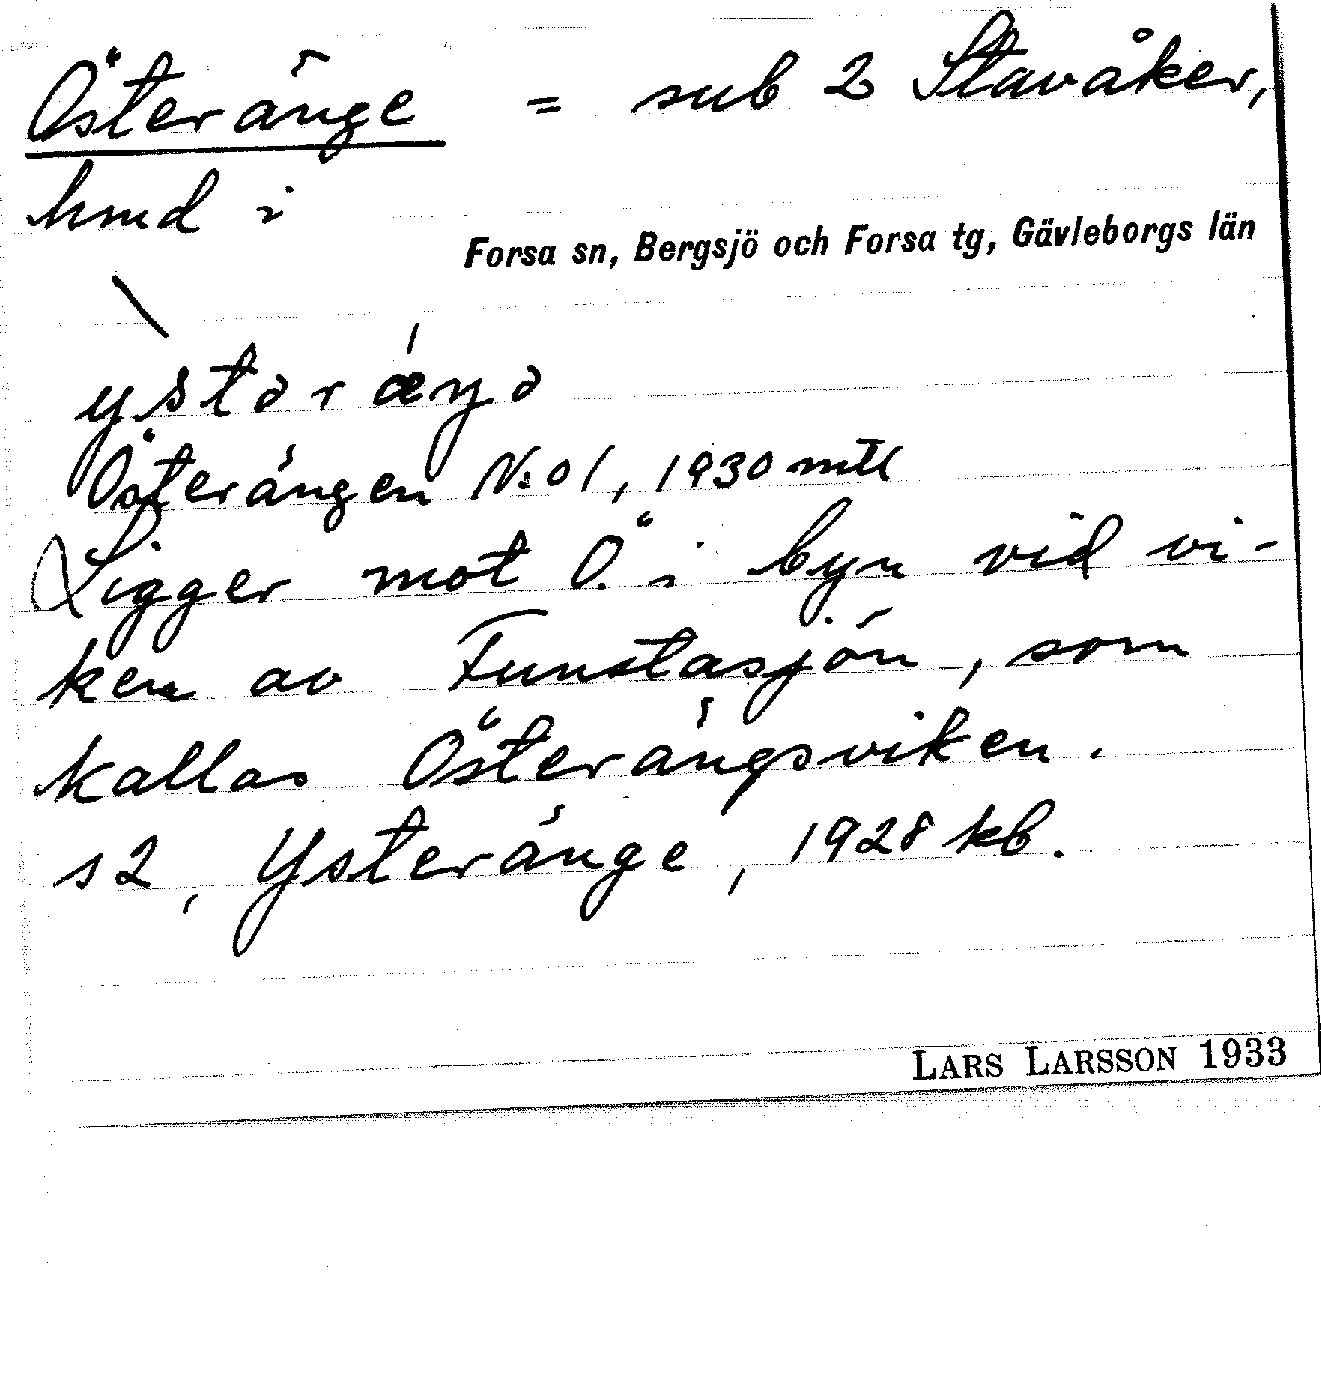 Österänge = sub 2 Stavåker,
hmd i
Forsa sn, Bergsjö och Forsa tg, Gävleborgs län
ỳstərǽŋə
Österängen N:o 1, 1930 mtl
Ligger mot Ö. i byn vid vi-
ken av Funstasjön, som
kallas Österängsviken.
s2, Ysteränge, 1928 kb.
LARS LARSSON 1933